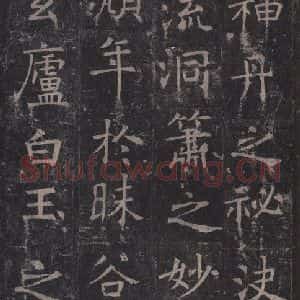 神丹之祕決
流洞簫之妙
頹年於昧谷
玄廬白玉之
Shufawang.CN